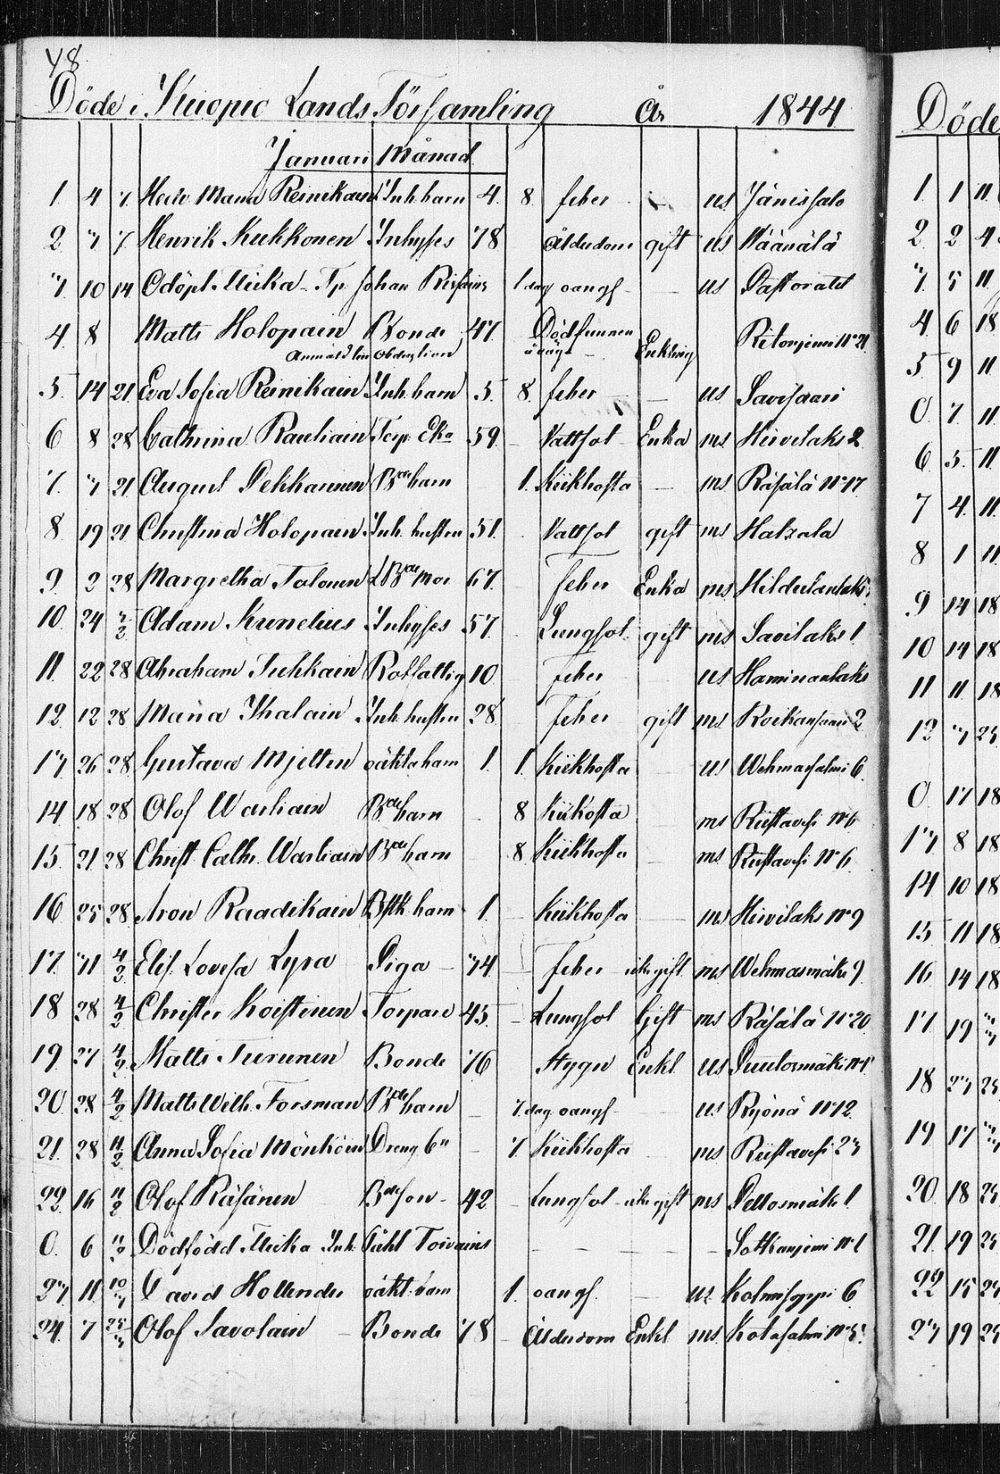 48.
Döde i Kuopio Lands Församling År 1844
Januari Månad
1 4 7 Hedv Maria Reinikain Inh. barn 4. 8. feber us Jänissalo
2 3 7 Henrik Kukkonen Inhyses 78 Ålderdom gift us Väänälä
3. 10 14 Odöpt Flicka Johan 1 dag oangf — us Pastoratet
4 8 Matts Holopain Bonde 47. Dödfunnen Enkling Retonjemi N:o 21
Anmäld til Obduction å vägn
5. 14 21 Eva Sofia Reinikain Inh. barn 5. 8. feber — us Savisaari
6 8 28 Cathrina Rautiain Torp. Eka 59 Vattsot Enka ms Hirvilaks 2
7. 3 21 August Pekkarinen B:de barn 1. Kikhosta — ms Räsälä N:o 17
8 19 21 Christina Holopain Inh. hustru 51. Vattsot gift ms Hatzala
9. 2 28 Margretha Tolonen B:de mor 67. feber Enka ms
10. 24 4/2 Adam Kunelius Inhyses 57. Lungsot gift ms Savilaks 1
11. 22 28 Abraham Tuhkain Rotfattig 10 feber us Haminanlaks
12 12 28 Maria Ihalain Inh. hustru 28 feber gift ms 2
13 26 28 Gustava Mjelten oäkta barn 1. 1. Kikhosta us Wehmasjalmi 6
14 18 28 Olof Wartiain B:de barn 8 Kikhosta ms Riistavesi N:o 6
15. 21 28 Christ. Cath. Wartiain B:de barn 8 Kikhosta ms Riistavesi N:o 6.
16 25 28 Aron Raadikain barn 1. Kikhosta — ms Hirvilaks N:o 9
17. 31 4/2 Elis. Lovisa Lyra Piga — 34 — feber icke gift ms Wehmasmäki 9
18 28 4/2 Christer Koistinen Torpare 45 — Lungsot Gift ms Räsälä N:o 20
19. 27 4/2 Matts Turunen Bonde 76 Stygn Enkl us Puutosmäki N:o 1
20. 28 4/2 Matts Wilh. Forsman B:de barn — 7. dag oangf us Ryönä N:o 12
21. 28 11/2 Anna Sofia Mönköin Dreng b:n — 7. Kikhosta — ms Riistavesi 23
22. 16 11/2 Olof Räsänen B:de son — 42 — Lungsot icke gift ms Pellosmäki 1
0. 6 11/2 Dödfödd Flicka Inh. Påhl Toivains — — — — Sotkanjemi N:o 1
23 11 10/3 David Hollender oäkt. barn 1. oangf. — us Kolmisoppi 6
24. 7 25/3 Olof Savolain — Bonde 78 — Ålderdom Enkl ms Kotasalmi N:o 5.
Döde
1. 1 11
2. 2 4
3. 5 11
4 6 18
5 9 11
0 7. 11
6. 5. 11
7 4. 11.
8 1 11
9 14 18
10 14 18
11 11 18
12 3 25
0. 17 18
13 8 18
14 10 18
15 11 18
16 14 18
17 19
18 23 25
19 17
20. 18 25
21. 19 25
22 15 25
23 19 25